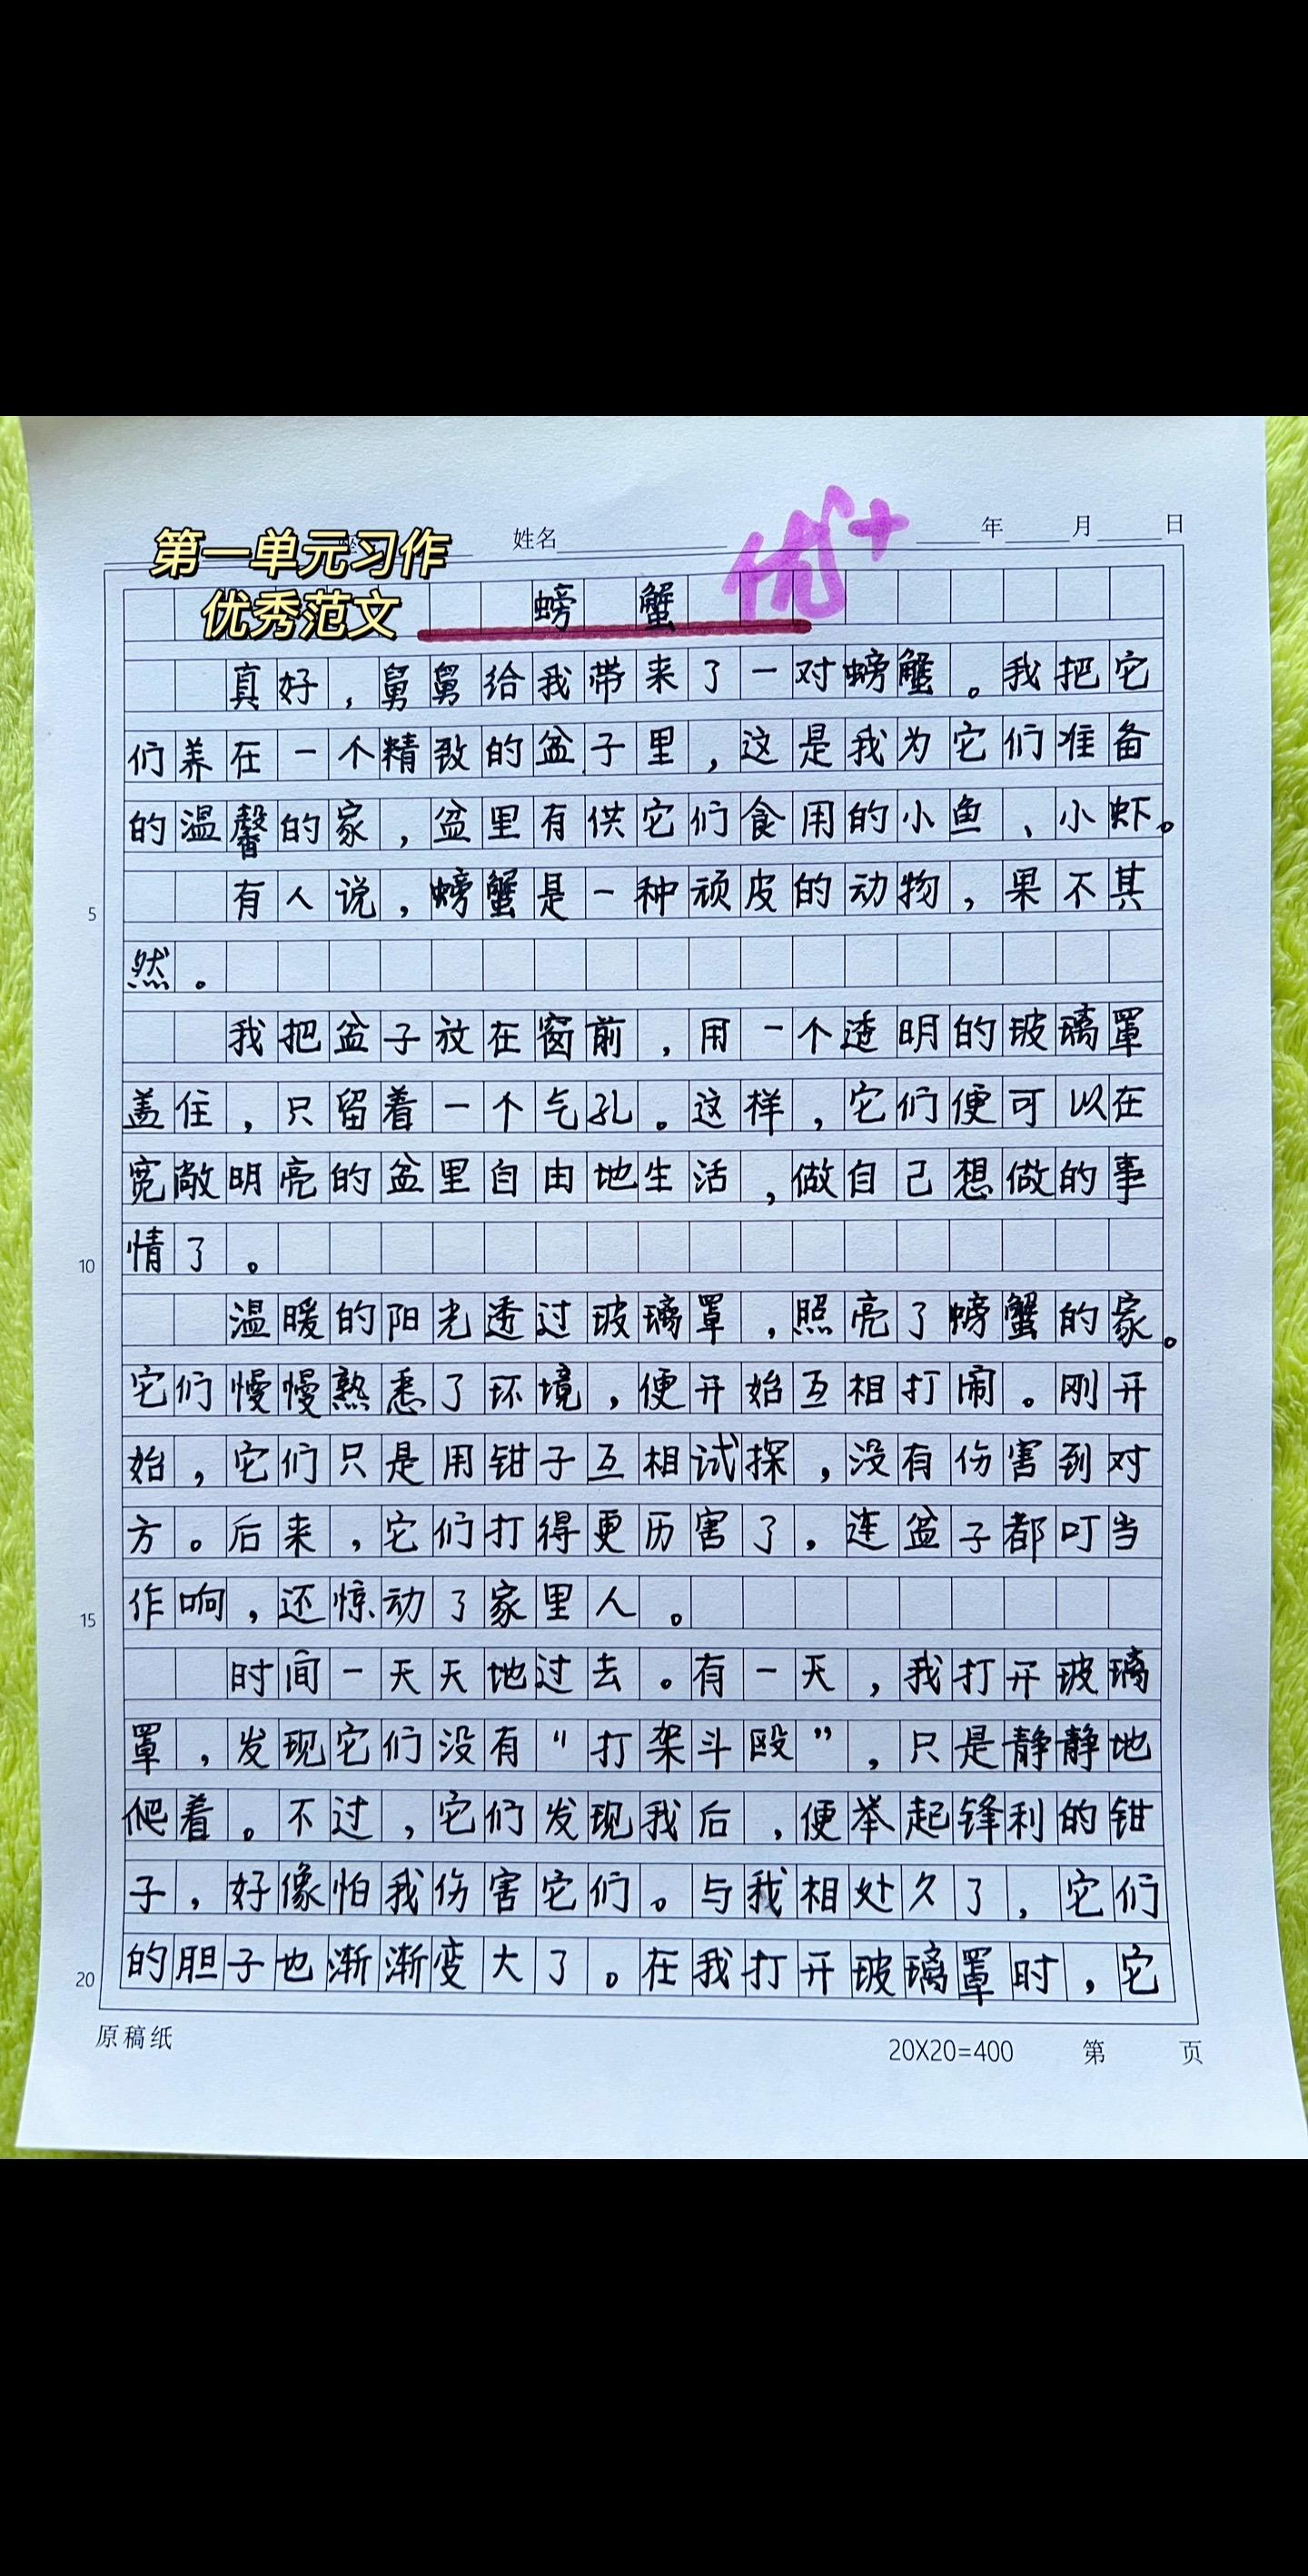 第一单元习作
优秀范文
姓名 年 月 日
优+
螃蟹
真好，舅舅给我带来了一对螃蟹。我把它
们养在一个精致的盆子里，这是我为它们准备
的温馨的家，盆里有供它们食用的小鱼、小虾。
5 有人说，螃蟹是一种顽皮的动物，果不其
然。
我把盆子放在窗前，用一个透明的玻璃罩
盖住，只留着一个气孔。这样，它们便可以在
宽敞明亮的盆里自由地生活，做自己想做的事
10 情了。
温暖的阳光透过玻璃罩，照亮了螃蟹的家。
它们慢慢熟悉了环境，便开始互相打闹。刚开
始，它们只是用钳子互相试探，没有伤害到对
方。后来，它们打得更历害了，连盆子都叮当
15 作响，还惊动了家里人。
时间一天天地过去。有一天，我打开玻璃
罩，发现它们没有“打架斗殴”，只是静静地
爬着。不过，它们发现我后，便举起锋利的钳
子，好像怕我伤害它们。与我相处久了，它们
20 的胆子也渐渐变大了。在我打开玻璃罩时，它
原稿纸 20X20=400 第 页